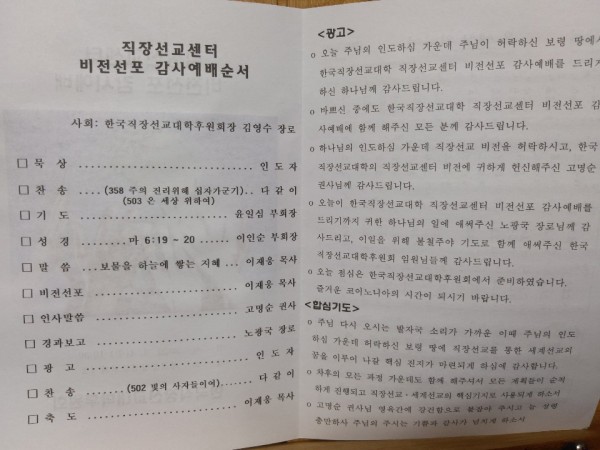 직장선교센터
비전선포 감사예배순서
사회: 한국직장선교대학후원회장 김영수 장로
□ 묵 상 ........................ 인 도 자
□ 찬 송 ....(358 주의 진리위해 십자가군기).. 다 같 이
(503 은 세상 위하여)
□ 기 도 ........................ 윤인심 부회장
□ 성 경 ........ 마 6:19 ~ 20 ...... 이인순 부회장
□ 말 씀 ...보물을 하늘에 쌓는 지혜... 이재웅 목사
□ 비전선포 ........................ 이재웅 목사
□ 인사말씀 ........................ 고명순 권사
□ 경과보고 ........................ 노광국 장로
□ 광 고 ........................ 인 도 자
□ 찬 송 ......(502 빛의 사자들이여)...... 다 같 이
□ 축 도 ........................ 이재웅 목사
<광고>
o 오늘 주님의 인도하심 가운데 주님이 허락하신 보령 땅에서
한국직장선교대학 직장선교센터 비전선포 감사예배를 드리게
하신 하나님께 감사드립니다.
o 바쁘신 중에도 한국직장선교대학 직장선교센터 비전선포 감
사예배에 함께 해주신 모든 분께 감사드립니다.
o 하나님의 인도하심 가운데 직장선교 비전을 허락하시고, 한국
직장선교대학의 직장선교센터 비전에 귀하게 헌신해주신 고명순
권사님께 감사드립니다.
o 오늘이 한국직장선교대학 직장선교센터 비전선포 감사예배를
드리기까지 귀한 하나님의 일에 애써주신 노광국 장로님께 감
사드리고, 이일을 위해 불철주야 기도로 함께 애써주신 한국
직장선교대학후원회 임원님들께 감사드립니다.
o 오늘 점심은 한국직장선교대학후원회에서 준비하였습니다.
즐거운 코이노니아의 시간이 되시기 바랍니다.
<합심기도>
o 주님 다시 오시는 발자국 소리가 가까운 이때 주님의 인도
하심 가운데 허락하신 보령 땅에 직장선교를 통한 세계선교의
꿈을 이루어 나갈 핵심 전지가 마련되게 하심에 감사합니다.
o 차후의 모든 과정 가운데도 함께 해주셔서 모든 계획들이 순적
하게 진행되고 직장선교·세계선교의 핵심기지로 사용되게 하소서
o 고명순 권사님 영육간에 강건함으로 붙잡아 주시고 늘 성령
충만하사 주님의 주시는 기쁨과 감사가 넘치게 하소서